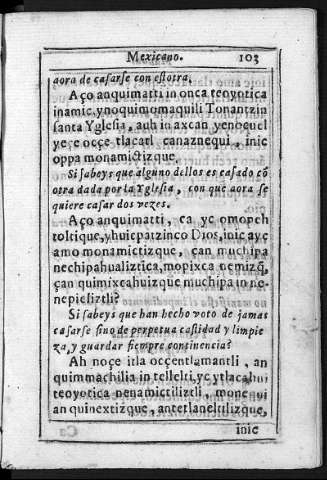 Mexicano. 103
aora de casarse con estotra.
Aço anquimatti in onca teoyotica
inamic, ynoquimomaquili Tonantzin
santa Yglesia, auh in axcan yenoquel
ye ce occe tlacatl canaznequi, inic
oppa monamictizque.
Si sabeys que alguno dellos es casado cō
otra dada por la Yglesia, con que aora se
quiere casar dos vezes.
Aço anquimatti, ca ye omopeh
toltique, yhuicpatzinco Dios, inic ayc
amo monamictizque, can muchipa
nechipahualiztica, mopixca nemizq̄,
çan quimixcahuizque muchipa in ne-
nepieliztli?
Si sabeys que han hecho voto de jamas
casarse sino de perpetua castidad y limpie
za, y guardar siempre continencia?
Ah noçe itla occentlamantli, an
quimmachilia in tellelti, yc ytlacahui
teoyotica nenamictiliztli, mone
an quinextizque, antetlaneltilizque,
inic